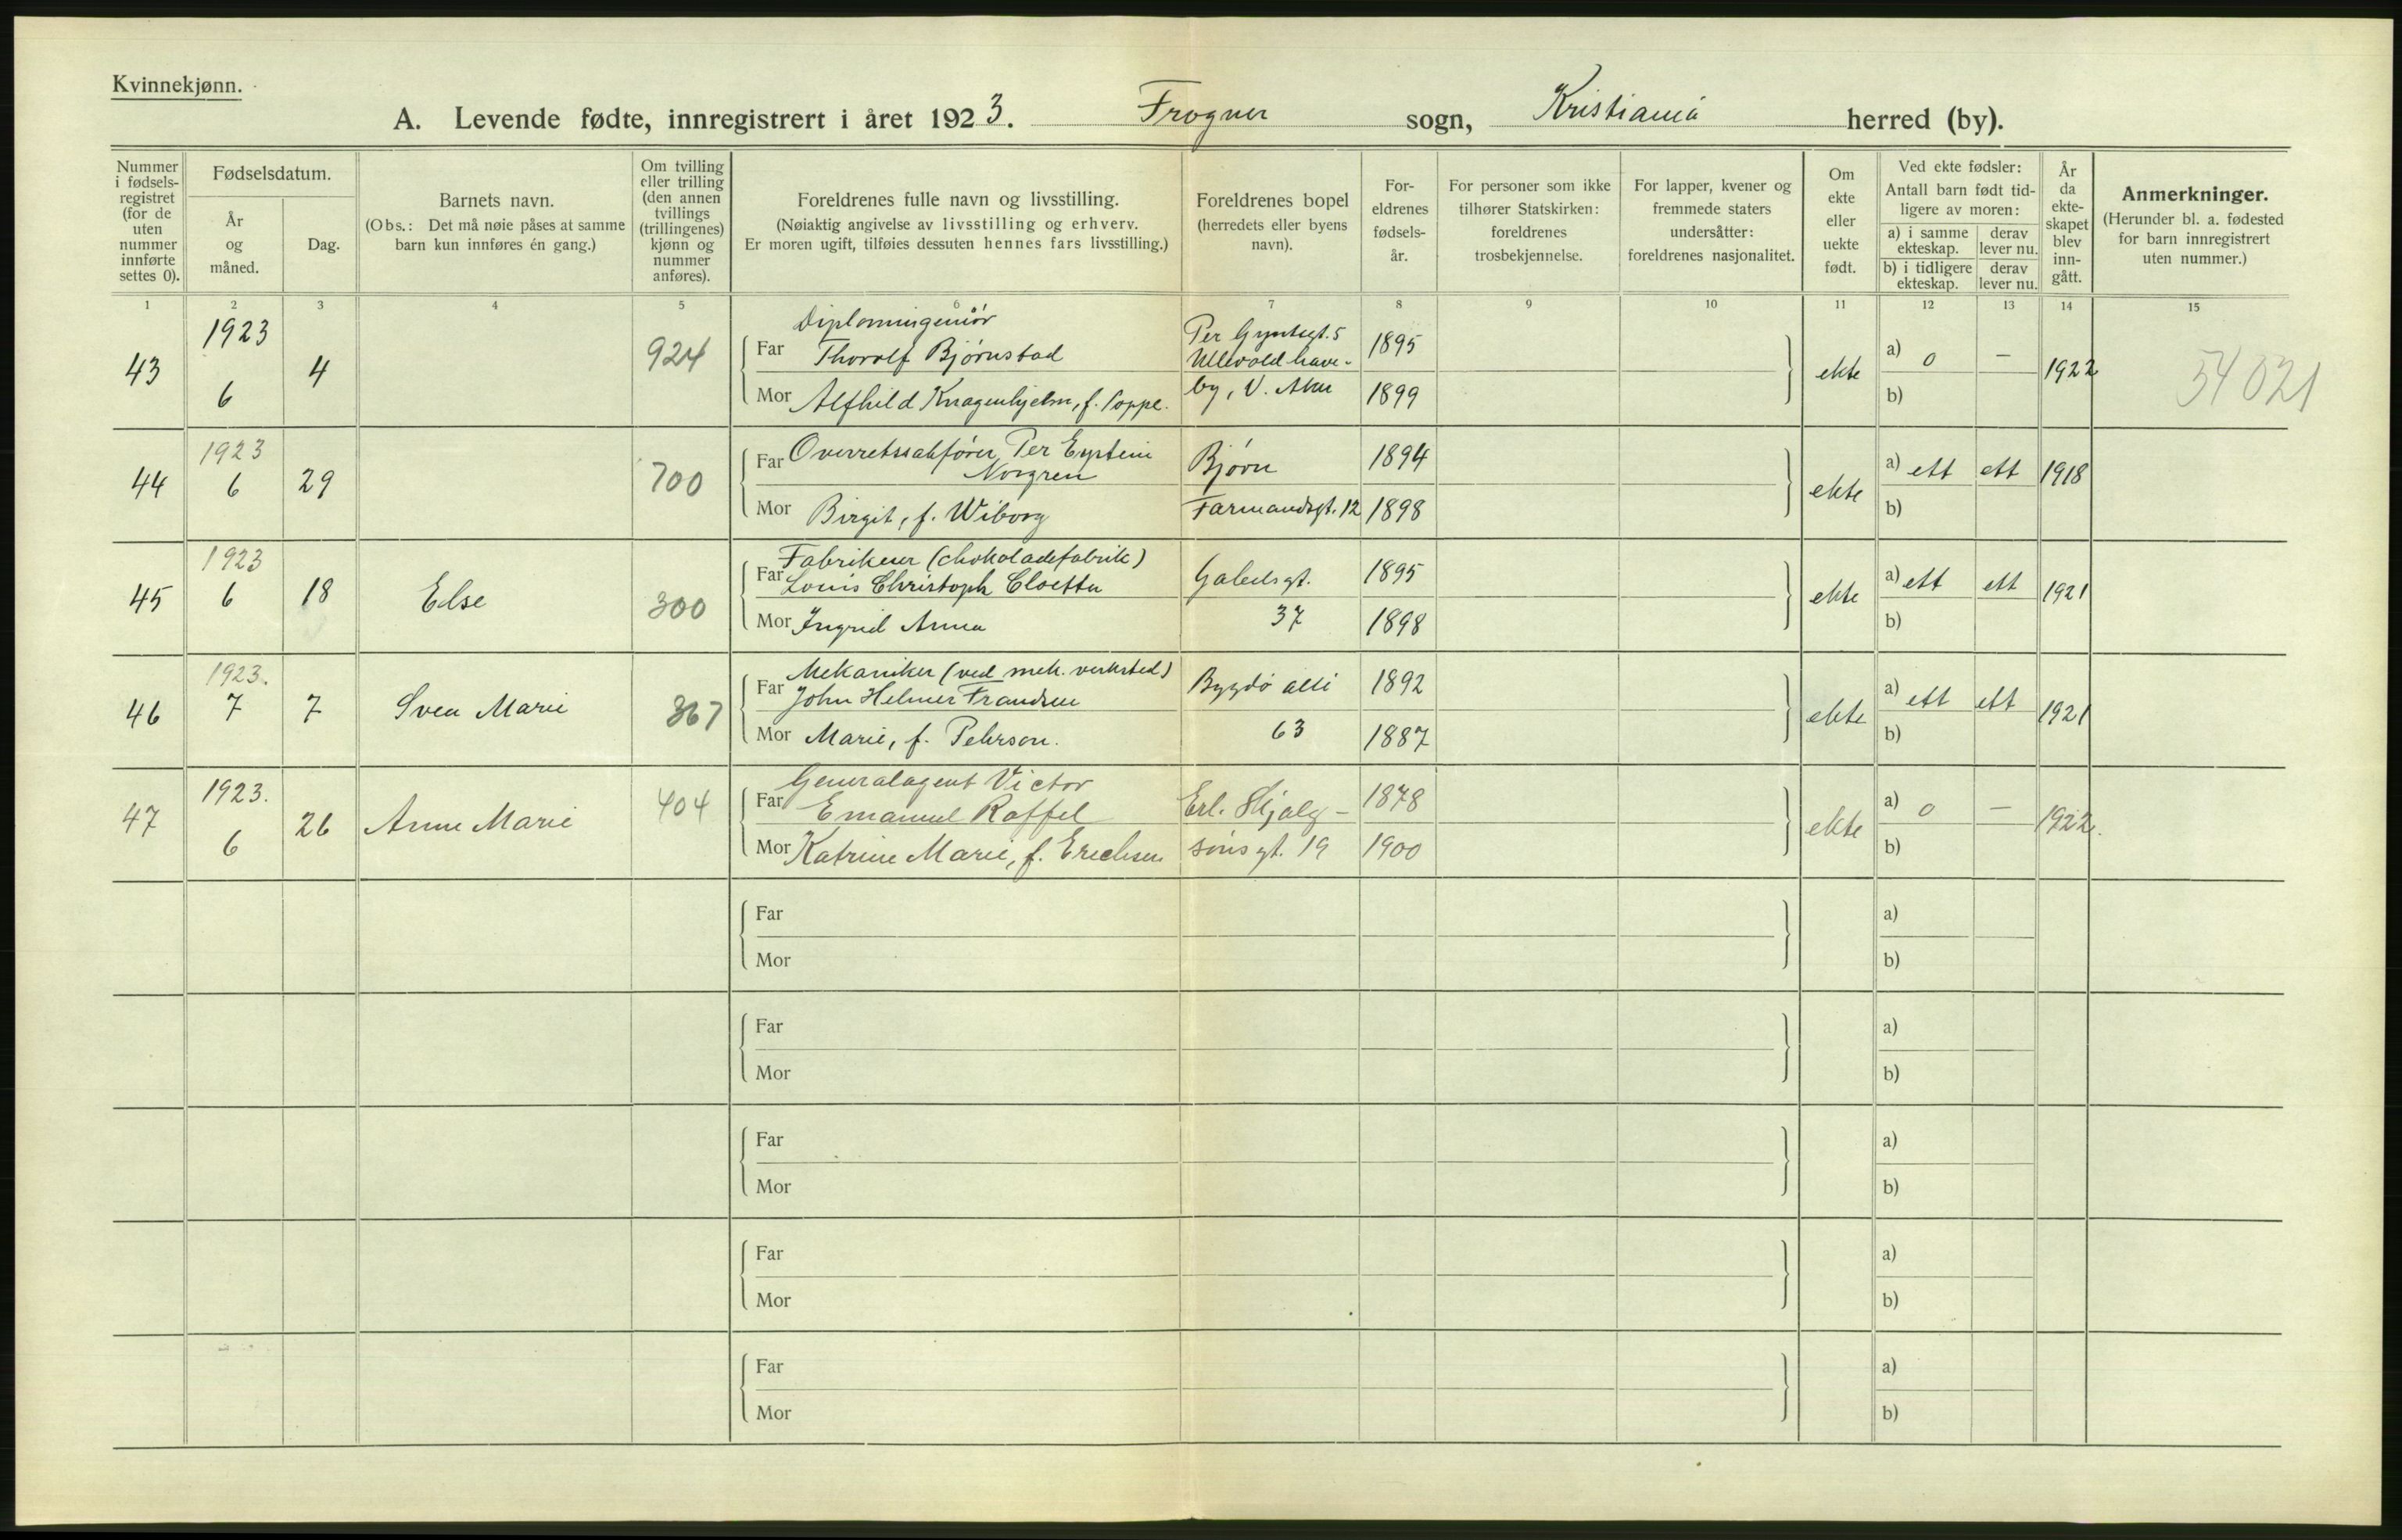 Kvinnekjønn.
A. Levende fødte, innregistrert i året 1923. Frogner sogn, Kristiania herred (by).
Nummer i fødsels-registret (for de uten nummer innførte settes 0).
Fødselsdatum.
År og måned.
Dag.
Barnets navn.
(Obs.: Det må nøie påses at samme barn kun innføres én gang.)
Om tvilling eller trilling (den annen tvillings (trillingenes) kjønn og nummer anføres).
Foreldrenes fulle navn og livsstilling.
(Nøiaktig angivelse av livsstilling og erhverv.
Er moren ugift, tilføies dessuten hennes fars livsstilling.)
Foreldrenes bopel
(herredets eller byens navn).
For-eldrenes fødsels-år.
For personer som ikke tilhører Statskirken: foreldrenes trosbekjennelse.
For lapper, kvener og fremmede staters undersåtter: foreldrenes nasjonalitet.
Om ekte eller uekte født.
Ved ekte fødsler:
Antall barn født tid-ligere av moren:
a) i samme ekteskap. derav lever nu.
b) i tidligere ekteskap. derav lever nu.
År da ekte-skapet blev inn-gått.
Anmerkninger.
(Herunder bl. a. fødested for barn innregistrert uten nummer.)
1 2 3 4 5 6 7 8 9 10 11 12 13 14 15
43 1923 6 4 924
Diplomingeniør
Far Thoralf Bjørnstad
Mor Alfhild Knagenhjelm, f.
Per Gyntsgt. 5
Ullevold have-
by, V. Aker
1895
1899
ekte a) 0 – 1922 54021
b)
44 1923 6 29 700
Far Overretssakfører Per Eystein
Norgren
Mor Birgit, f. Wiborg
Bjørn
Farmandsgt. 12
1894
1898
ekte a) ett ett 1918
b)
45 1923 6 18 Else 300
Fabrikeier (chokoladefabrik)
Far Louis Christoph Cloetta
Mor Ingrid Anna
Gabelsgt.
37
1895
1898
ekte a) ett ett 1921
b)
46 1923. 7 7 Svea Marie 367
Mekaniker (ved mek. verksted)
Far John Helmer Frandsen
Mor Marie, f. Pehrson.
Bygdö allé
63
1892
1887
ekte a) ett ett 1921
b)
47 1923. 6 26 Anne Marie 404
Generalagent Victor
Far Emanuel Raffel
Mor Katrine Marie, f. Erichsen
Erl. Skjalg-
sönsgt. 19
1878
1900
ekte a) 0 – 1922.
b)
Far a)
Mor b)
Far a)
Mor b)
Far a)
Mor b)
Far a)
Mor b)
Far a)
Mor b)